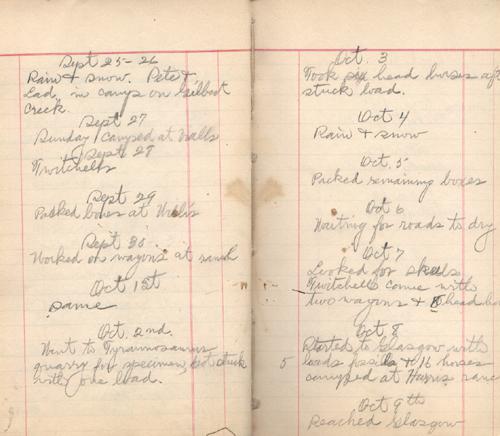 Sept 25-26
Rain & snow. Pete &
Lad in camp on Gilbert
Creek.
Sept 27
Sunday camped at Walls
Sept 28
Twitchells
Sept 29
Packed bones at Walls
Sept 30
Worked on wagons at ranch
Oct 1st
Same
Oct. 2nd.
Went to Tyrannosaurus
quarry for specimen, got stuck
with one load.
Oct. 3
Took six head horses aft
stuck load.
Oct 4
Rain & snow
Oct. 5
Packed remaining boxes
Oct 6
Waiting for roads to dry
Oct 7
Looked for skulls
Twitchells come with
two wagons & 8 head ho
Oct. 8
Started to Glasgow with
5 loads fossils & 16 horses
camped at Harris ranc
Oct 9th
Reached Glasgow